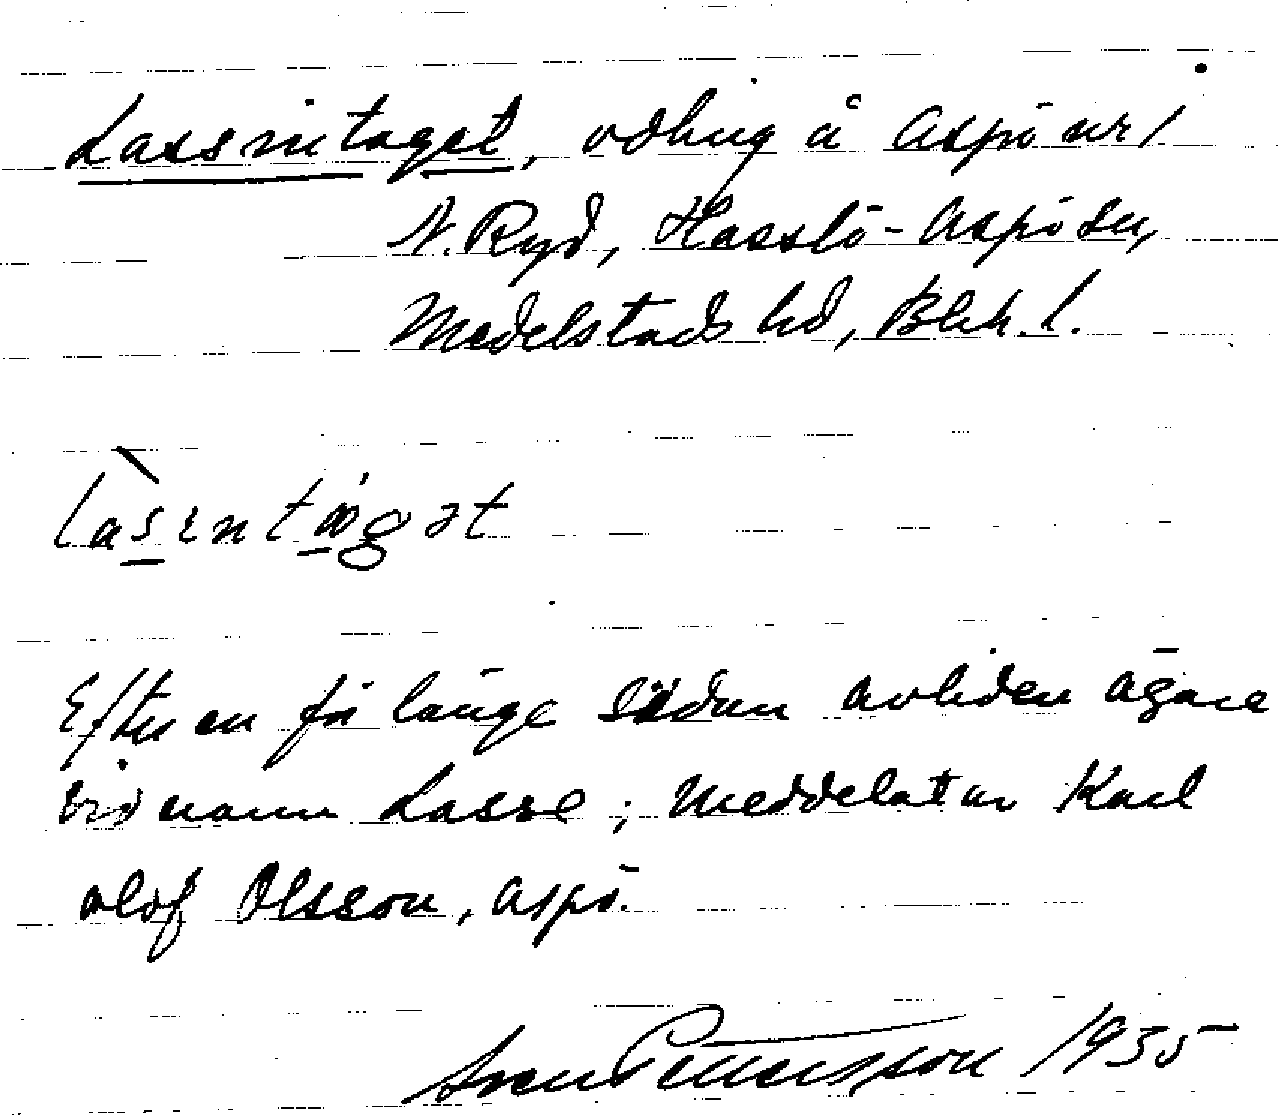 Lassintaget, odling å Aspö nr 1
N. Ryd, Hasslö-Aspö sn,
Medelstads hd, Blek. l.
làsentaget
Efter en för länge sedan avliden ägare
vid namn Lasse; meddelat av Karl
Olof Olsson, Aspö.
Sven Pettersson 1935